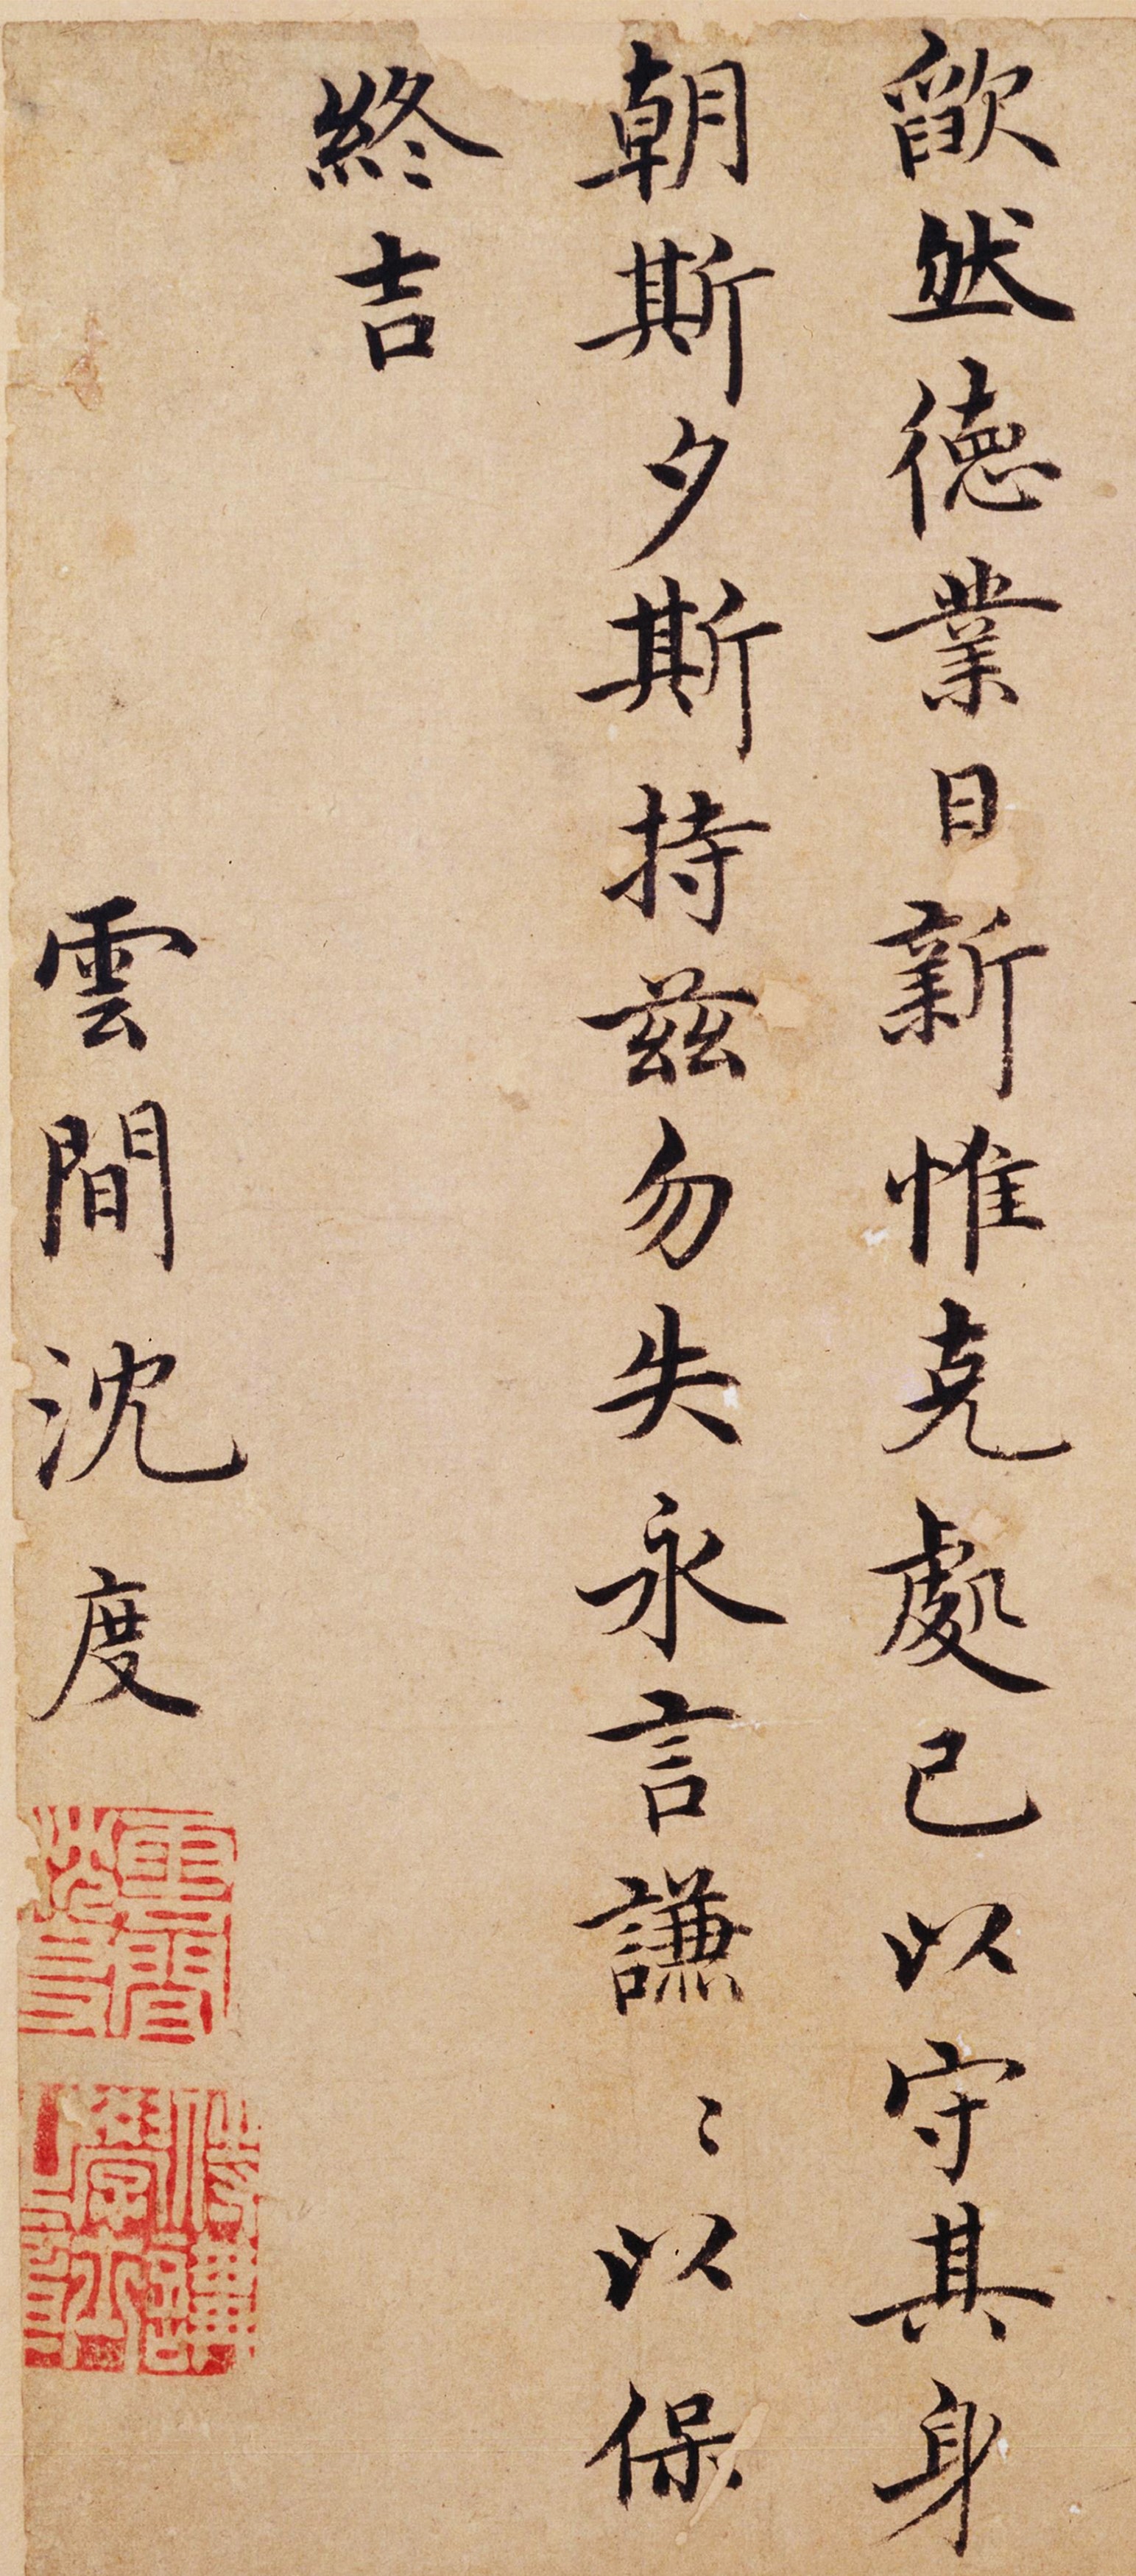 欿然德業日新惟克處己以守其身
朝斯夕斯持茲勿失永言謙〻以保
終吉
雲間沈度